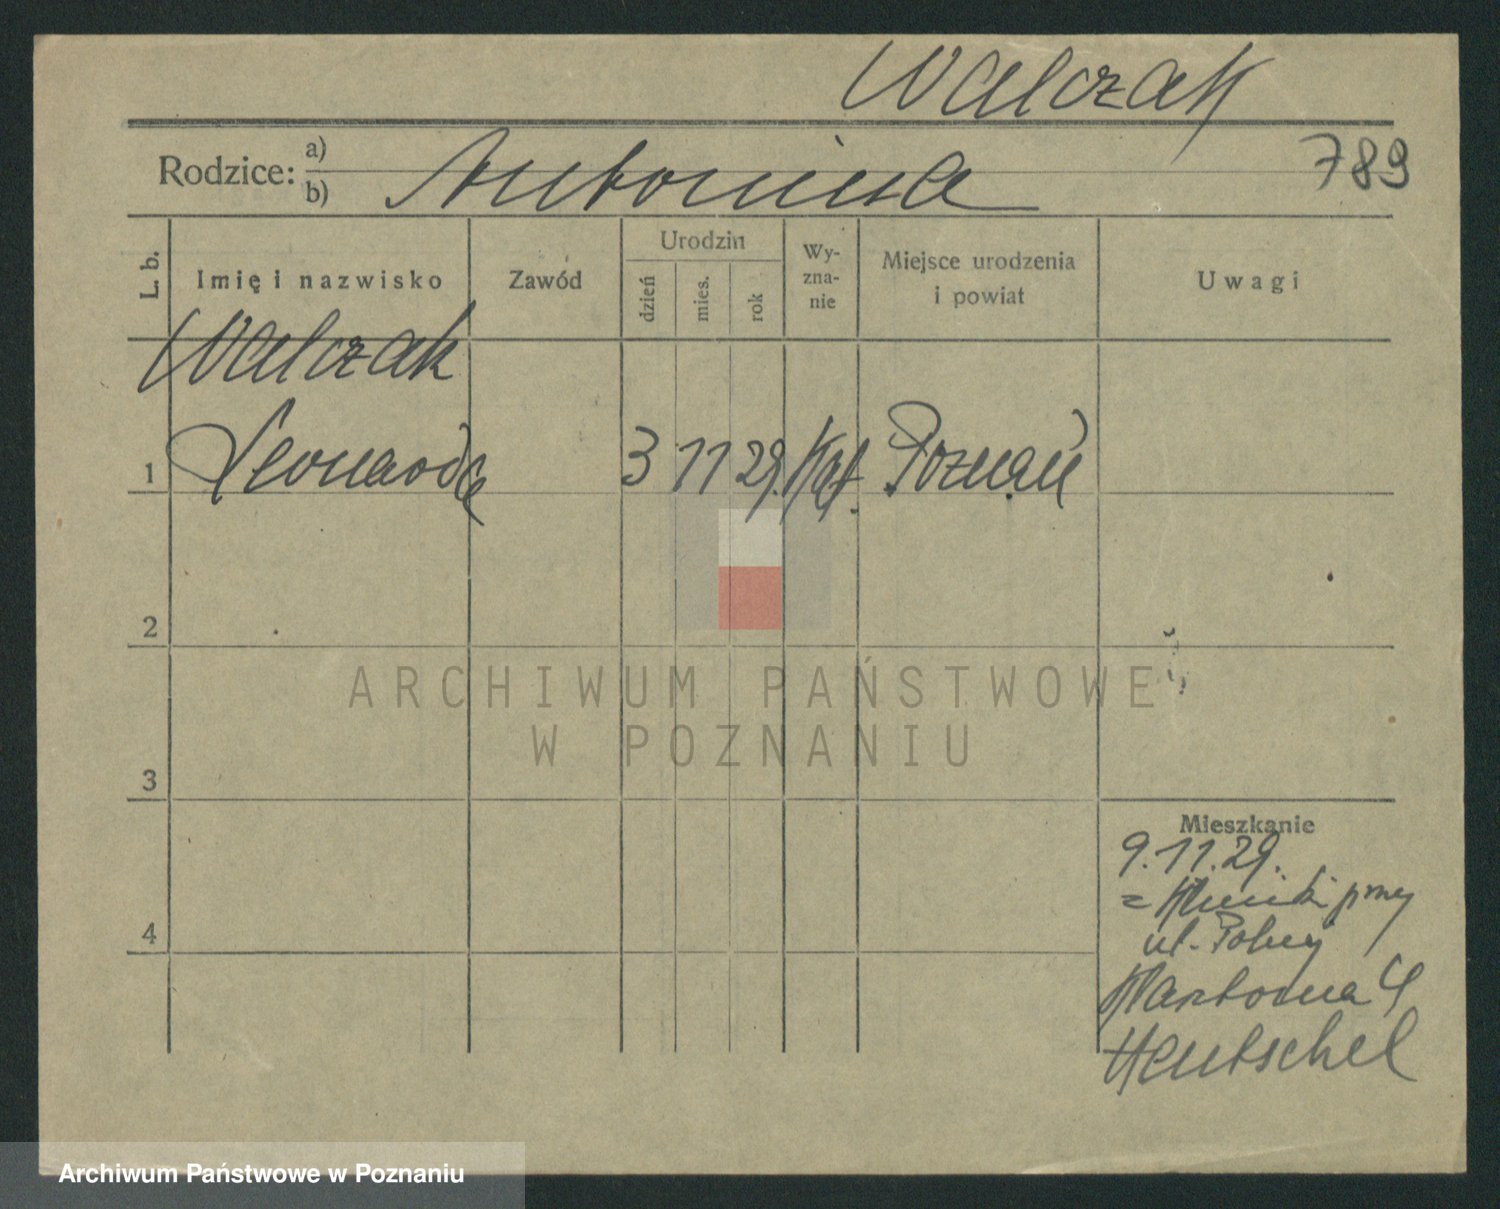 Walczak
Rodzice: a)
b) Antonina
789
L. b.
Imię i nazwisko
Zawód
Urodzin
dzień
mies.
rok
Wy-
zna-
nie
Miejsce urodzenia
i powiat
Uwagi
Walczak
1 Leonarda 3 11 29. Kat. Poznań
2
3
4
Mieszkanie
9.11.29.
z Kliniki przy
ul. Polnej
Hentschel
ARCHIWUM PAŃSTWOWE
W POZNANIU
Archiwum Państwowe w Poznaniu